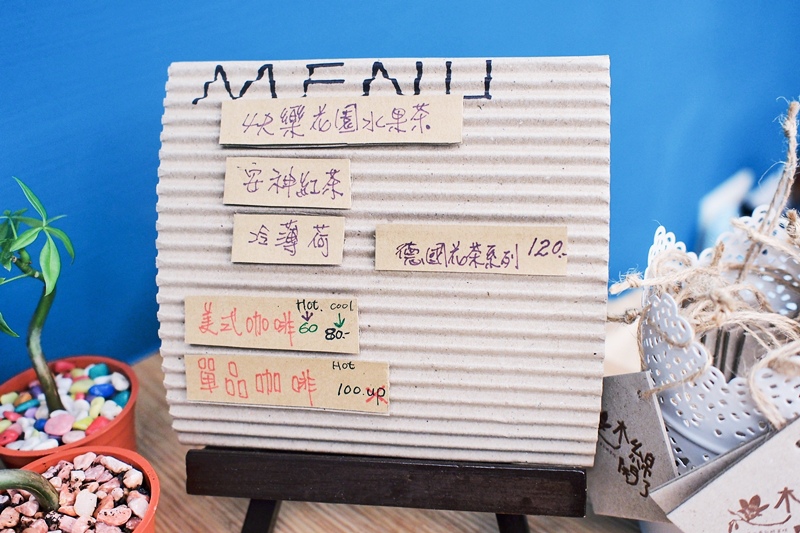 MENU
快樂花園水果茶
安神紅茶
冷薄荷
德國花茶系列 120.-
美式咖啡 Hot 60 cool 80.-
單品咖啡 Hot 100.up
木
木